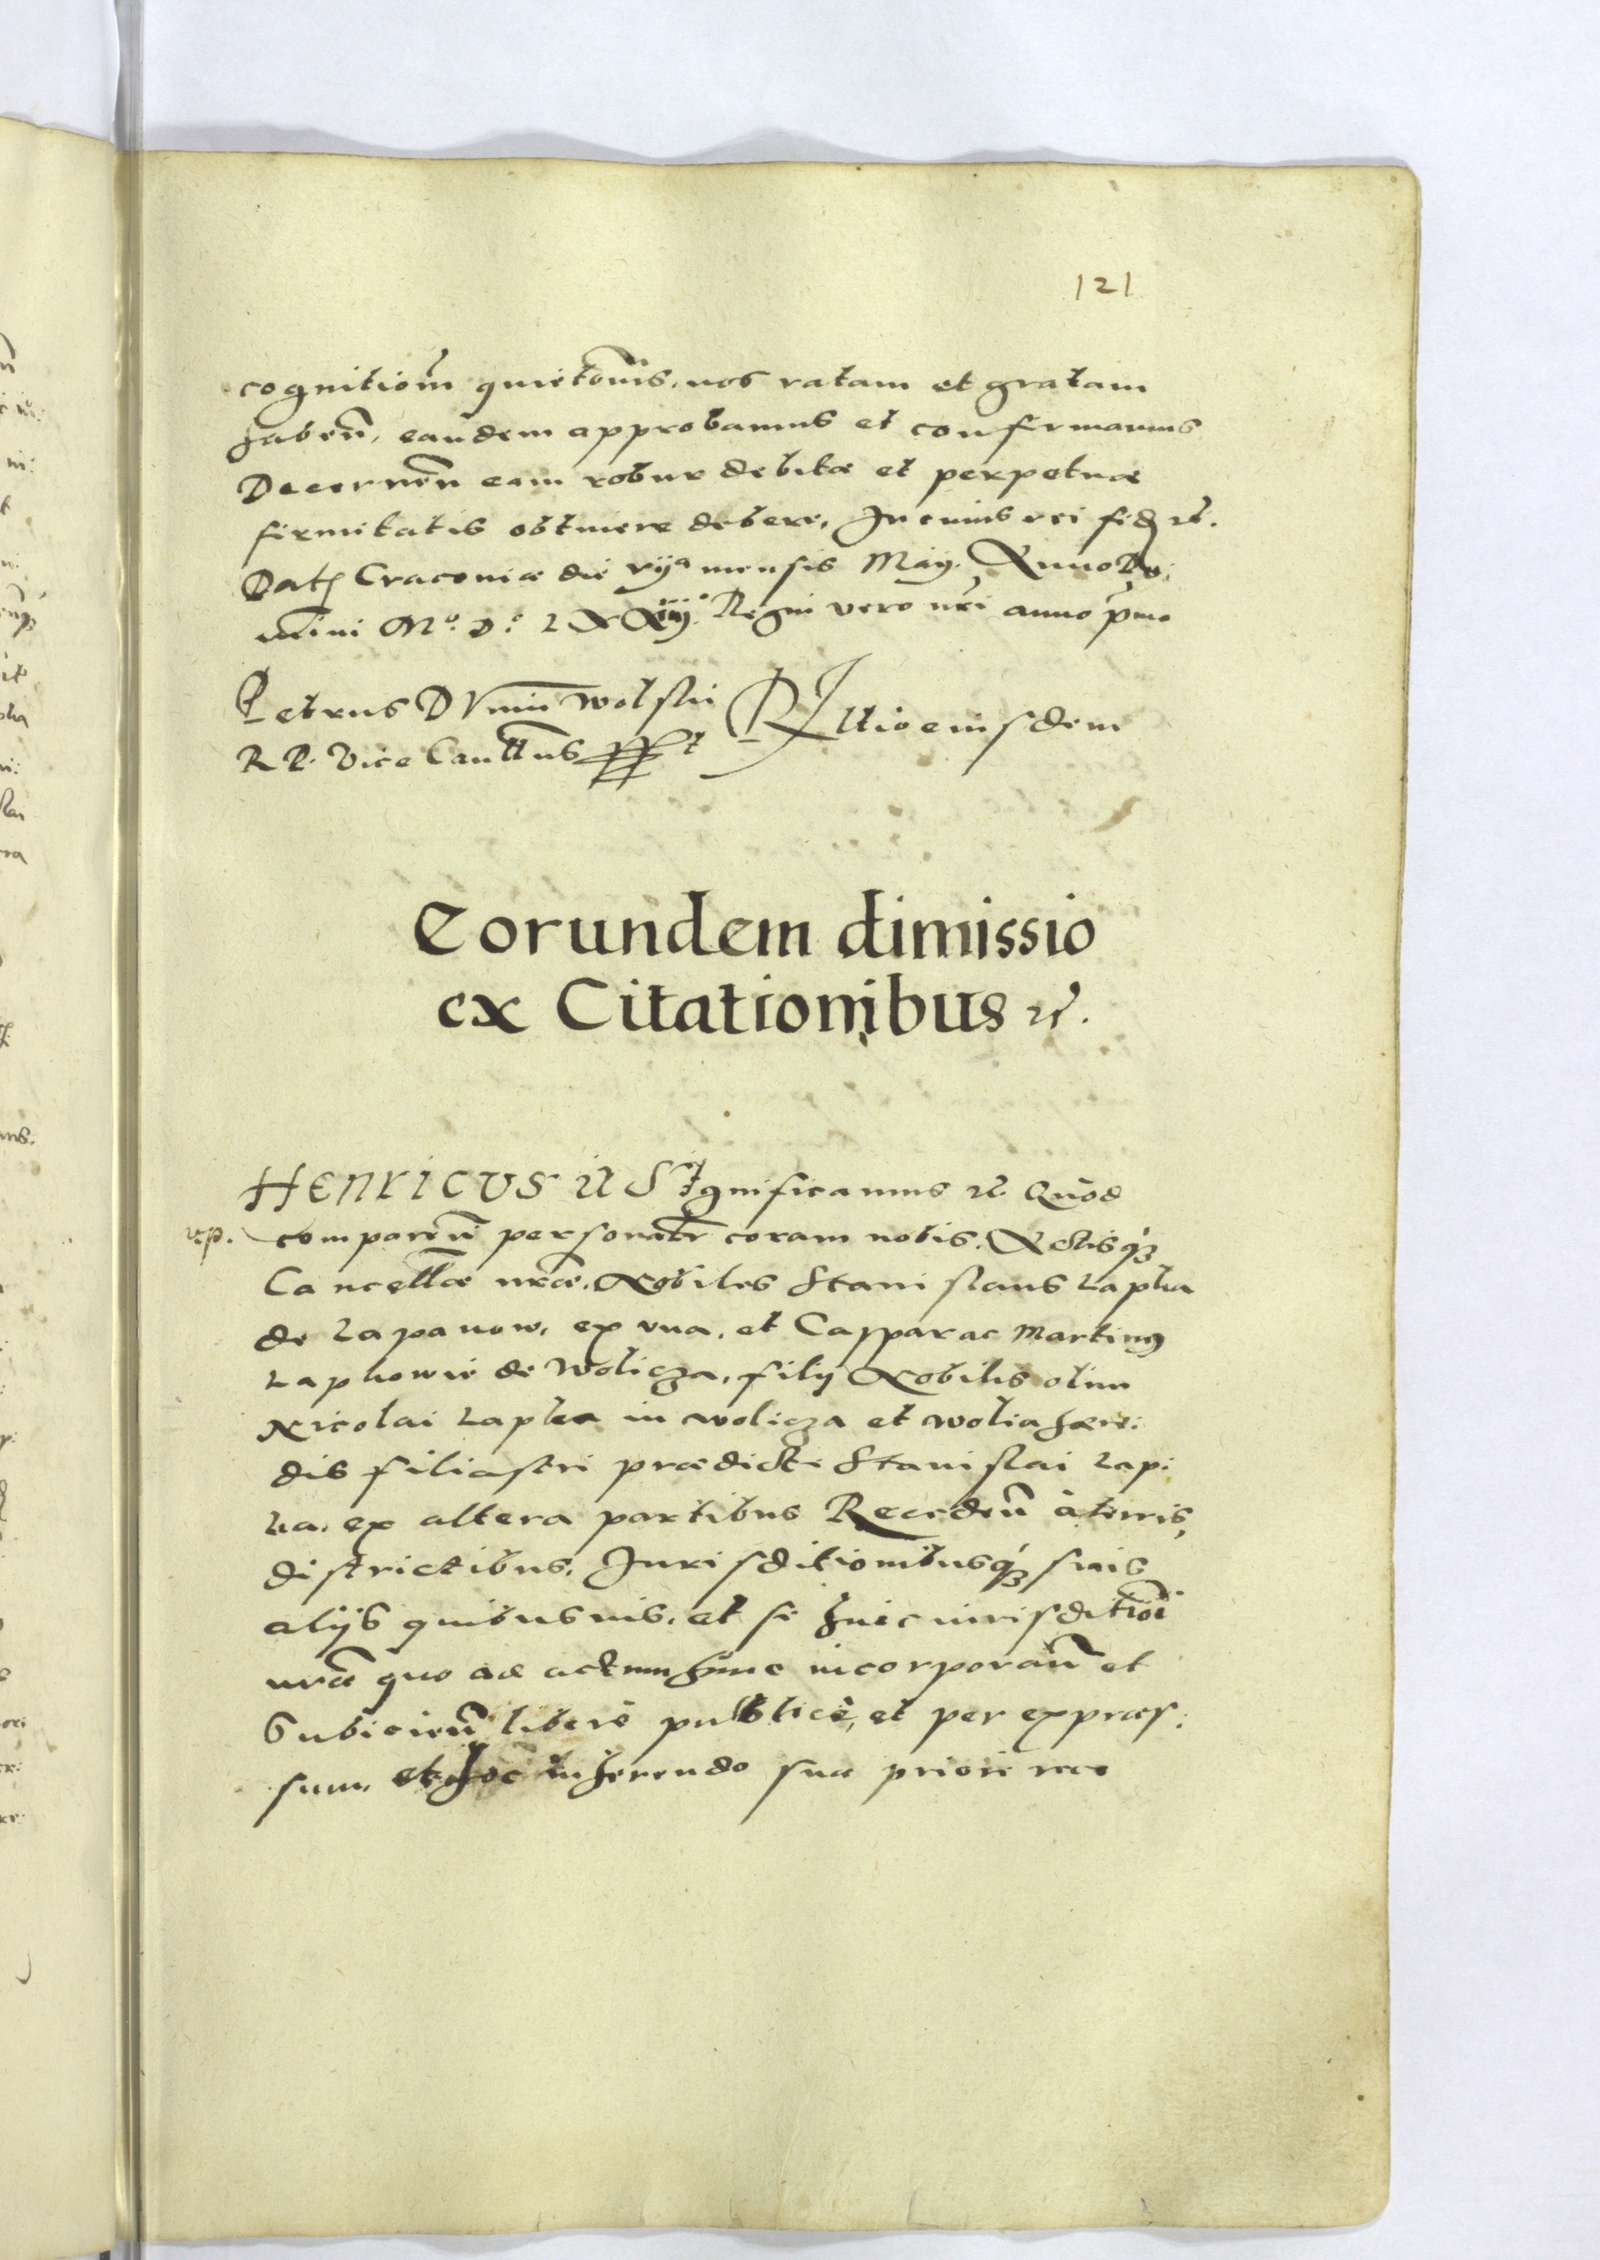 121
cognitiom̃ quietõnis, nos ratam et gratam
haben̄, eandem approbamus et confirmamus
Decernen̄ eam robur debitæ et perpetuæ
firmitatis obtinere debere, In cuius rei fid. etc.
Dat. Cracoviæ die vijª mensis Maÿ. Anno Do:
mini Mº. Dº. LXXiiijº. Regni vero nr̃i anno p̃mo
Petrus Dunin Wolski
R P. Vice Cancll̃us sspt Rltio eiusdem
Eorundem dimissio
ex Citationibus etc.
HENRICVS etc Significamus etc. Quod
comparen̄ personal̃r coram nobis. Actisq̃
Cancell̃æ nr̃æ. Nobiles Stanislaus Lapka
de Lapanow, ex vna, et Casspar ac Martinus
Lapkowie de Wolicza, filij Nobilis olim
Nicolai Lapka in Wolicza et Wolia hære:
dis filiastri prædicti Stanislai Lap:
ka, ex altera partibus Receden̄ à terris,
districtibus, Jurisditionibusq́ suis
alijs quibusuis, et se huic iurisditioĩ
nr̃æ quo ad actum hunc incorporan̄ et
Subicien̄ liberè publicè, et per expræs:
sum, et hoc inhærendo suæ priori reco